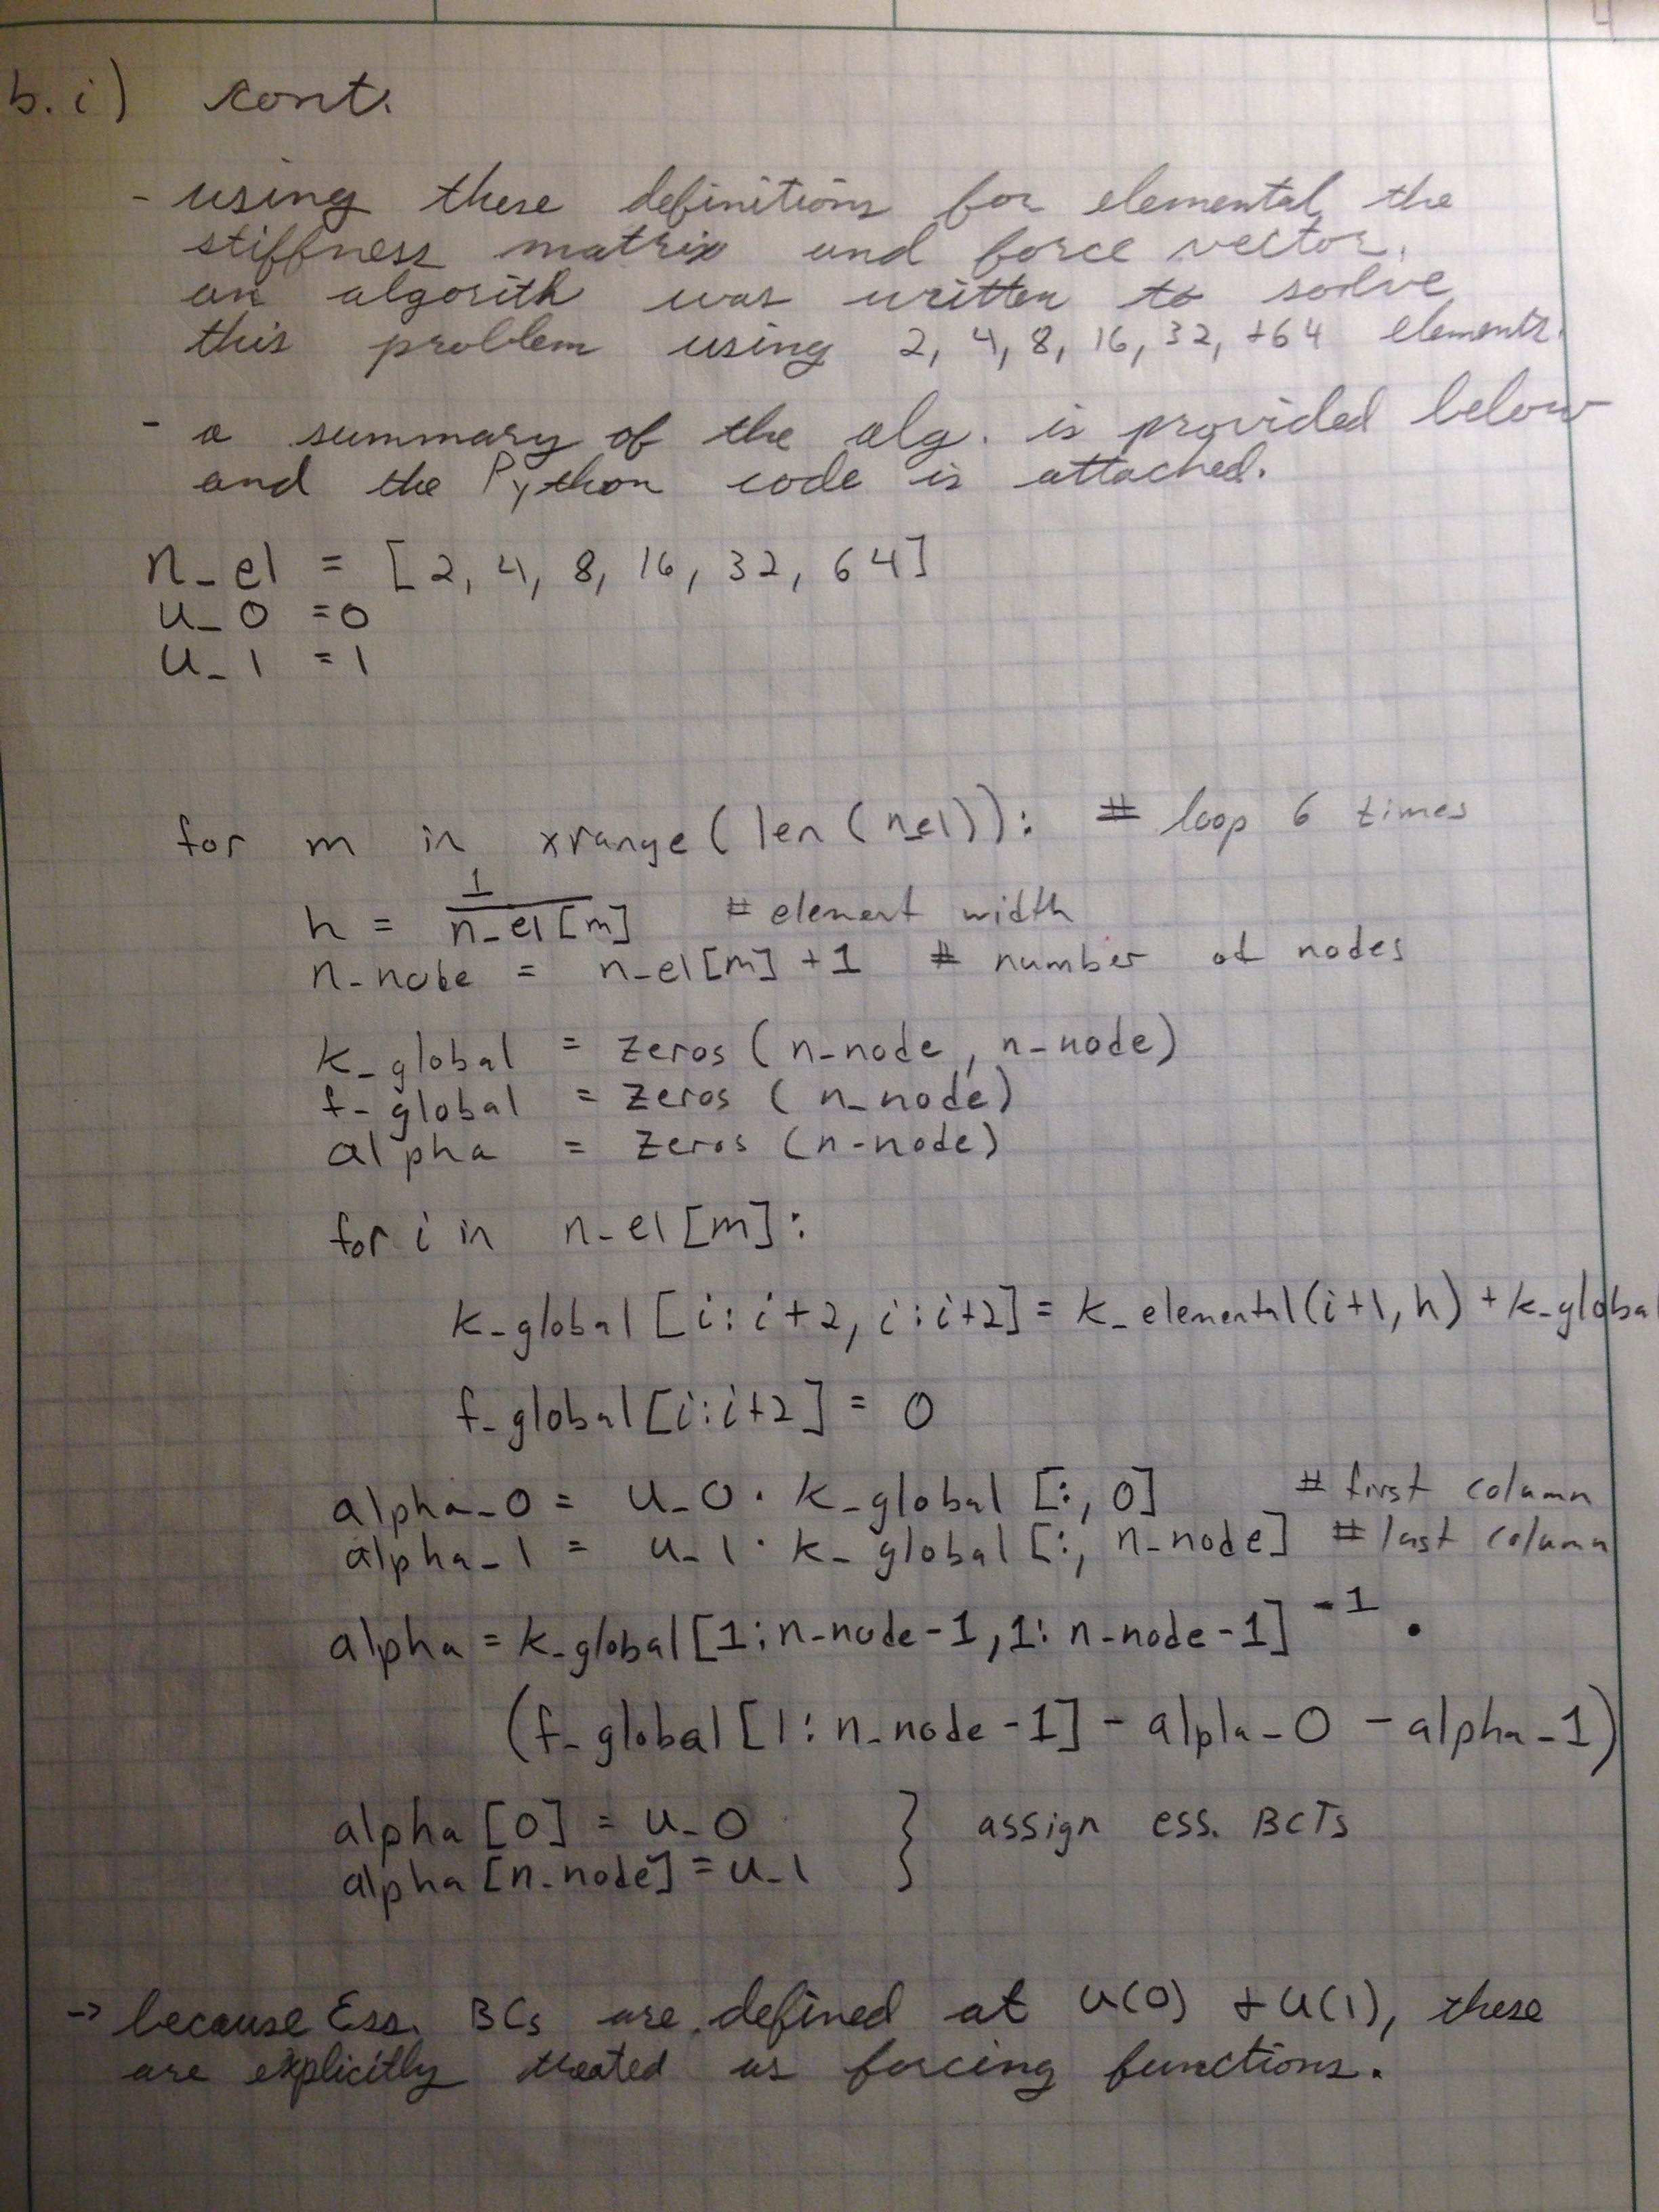 b.i) cont.
- using these definitions for elemental the
stiffness matrix and force vector,
an algorith was written to solve
this problem using 2, 4, 8, 16, 32, +64 elements.
- a summary of the alg. is provided below
and the Python code is attached.
n_el = [2, 4, 8, 16, 32, 64]
u_0 = 0
u_1 = 1
for m in xrange(len(n_el)): # loop 6 times
h = 1/n_el[m] # element width
n_node = n_el[m] + 1 # number of nodes
k_global = zeros(n_node, n_node)
f_global = zeros(n_node)
alpha = zeros(n_node)
for i in n_el[m]:
k_global[i:i+2, i:i+2] = k_elemental(i+1, h) + k_global
f_global[i:i+2] = 0
alpha_0 = u_0 · k_global[:, 0] # first column
alpha_1 = u_1 · k_global[:, n_node] # last column
alpha = k_global[1:n_node-1, 1:n_node-1]^-1 ·
(f_global[1:n_node-1] - alpla_0 - alpha_1)
alpha[0] = u_0 } assign ess. BCTs
alpha[n_node] = u_1
-> because Ess. BCs are defined at u(0) + u(1), these
are explicitly treated as forcing functions.